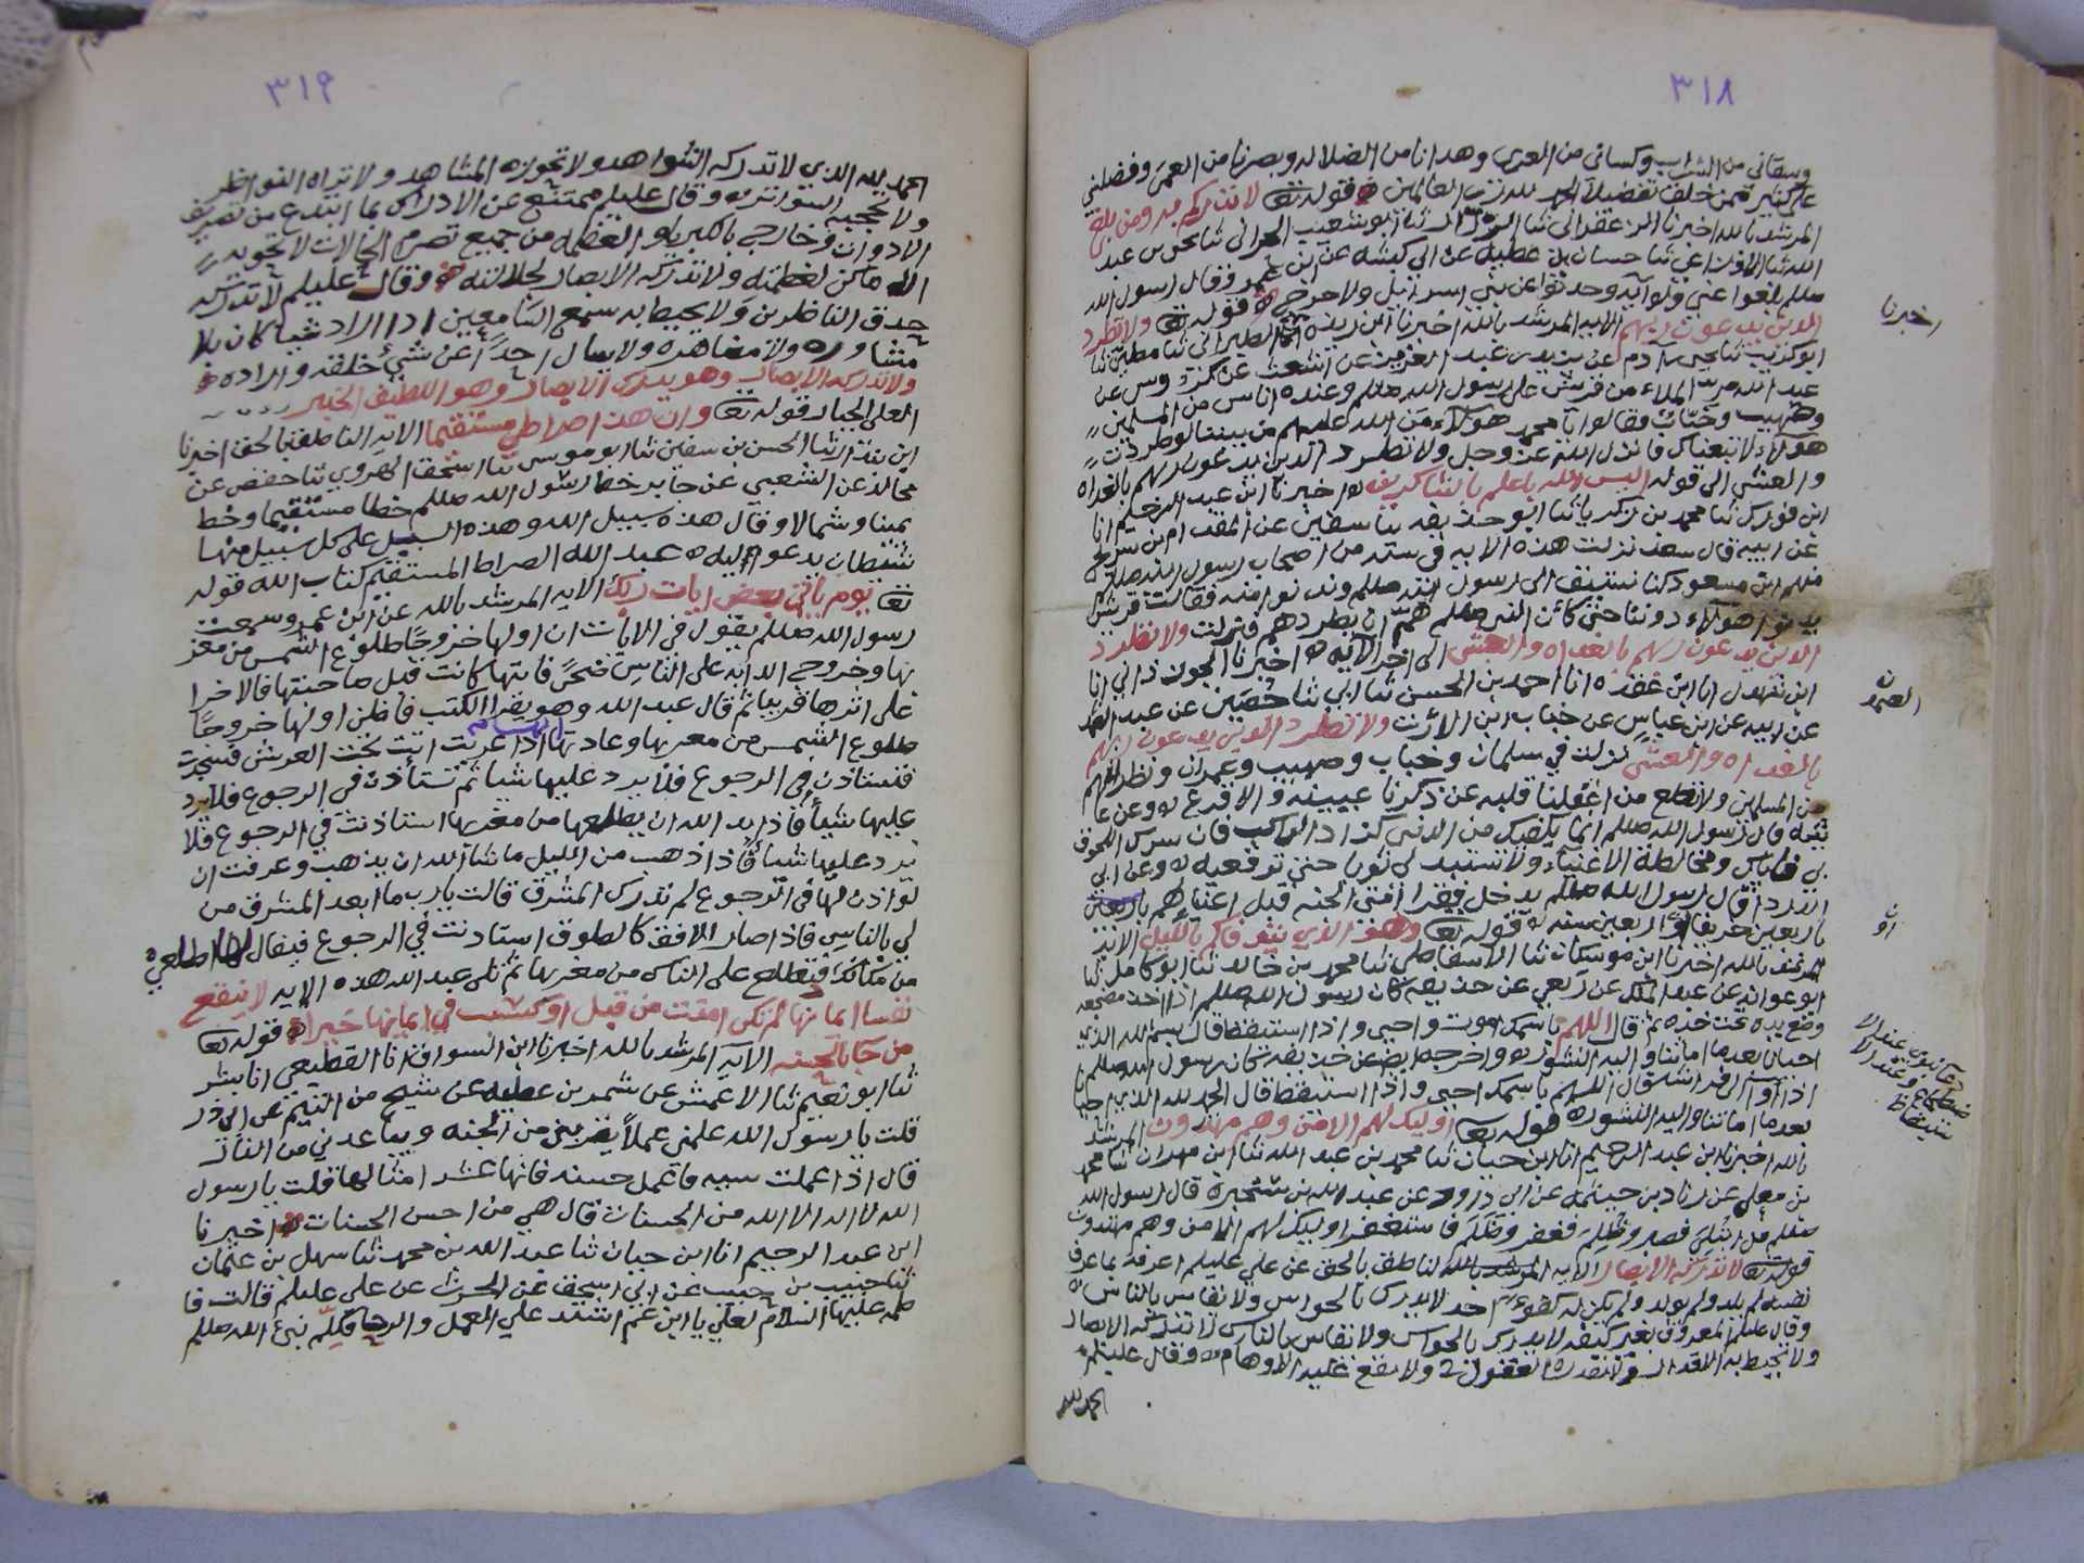 ٣١٨
وسقاني من الشراب وكساني من العرى وهدانا من الضلاله وبصرنا من العمى وفضلني
على كثير ممن خلف تفضيلا الحمد لله رب العالمين قوله تعا لانذركم به ومن بلغ
المرشد بالله اخبرنا ثنا ابو شعيب الحراني ثنا يحيى بن عبد
الله ثنا الاوزاعي ثنا حسان بن عطيه عن ابي كبشه عن ابن عمرو قال رسول الله
صللم بلغوا عني ولو آيه وحدثوا عن بني اسرائيل ولا حرج قوله تعا ولا تطرد
الذين يدعون ربهم الايه المرشد بالله اخبرنا ابن ريذه انا الطبراني ثنا مطين ثنا
اخبرنا
ابو كريب ثنا يحيى بن آدم عن يزيد بن عبد العزيز عن اشعث عن كردوس عن
عبد الله مر الملاء من قريش على رسول الله صللم وعنده اناس من المسلمين
وصهيب وخباب فقالوا يا محمد هولاء من الله عليهم من بيننا لو طردت
هولاء لاتبعناك فانزل الله عز وجل ولا تطرد الذين يدعون ربهم بالغداه
والعشي الى قوله اليس الله باعلم بالشاكرين اخبرنا ابن عبد الرحيم انا
ابن فورك ثنا محمد بن زكريا ثنا ابو حذيفه ثنا سفين عن المقدام بن شريح
عن ابيه قال سعد نزلت هذه الايه في سته من اصحاب رسول الله صللم
منهم ابن مسعود كنا نستبق الى رسول الله صللم وندنو منه فقالت قريش
يدنوا هولاء دوننا حتى كان النبي صللم هم ان يطردهم فنزلت ولا تطرد
الذين يدعون ربهم بالغداه والعشي الى اخر الايه اخبرنا الجوزذاني انا
ابن شهدل انا ابن عقده انا احمد بن الحسن ثنا ابي ثنا حصين عن عبد
عن ابيه عن ابن عباس عن خباب ابن الارت ولا تطرد الذين يدعون ربهم
بالغداه والعشي نزلت في سلمان وخباب وصهيب وعمران ونظرائهم
من المسلمين ولا تطع من اغفلنا قلبه عن ذكرنا عيينه والاقرع وعن
قال رسول الله صللم انما يكفيك من الدنيا كزاد الراكب فان سرك اللحوق
بي فاياك ومخالطة الاغنياء ولا تستبدلي ثوبا حتى ترقعيه وعن ابي
الدرداء قال رسول الله صللم يدخل فقرا امتي الجنه قبل اغنيائهم باربعين
باربعين خريفا او اربعين سنه قوله تعا وهو الذي يتوفاكم بالليل الايه
المرشد بالله اخبرنا ابن ثنا الاسفاطي ثنا محمد بن خالد ثنا ابو كامل ثنا
ابو عوانه عن عبد الملك عن ربعي عن حذيفه كان رسول الله صللم اذا اخذ مضجعه
وضع يده تحت خده ثم قال اللهم باسمك اموت واحيى واذا استيقظ قال بسم الله الذي
احيانا بعد ما اماتنا واليه النشور واخرجه ايض عن حذيفه كان رسول الله صللم
اذا اوى الى فراشه قال اللهم باسمك احيى واذا استيقظ قال الحمد لله الذي احيانا
بعد ما اماتنا واليه النشور قوله تعا اوليك لهم الامن وهم مهتدون المرشد
بالله اخبرنا ابن عبد الرحيم انا ابن حيان ثنا محمد بن عبد الله ثنا ابن مهران ثنا محمد
بن معلى عن زياد بن خيثمه عن ابي داود عن عبد الله بن سخبره قال رسول الله
صللم من ابتلي فصبر وظلم فغفر وظلم فاستغفر اوليك لهم الامن وهم مهتدون
قوله تعا لا تدركه الابصار الايه الناطق بالحق عن علي عليلم اعرفه بما عرف
نفسه لم يلد ولم يولد ولم يكن له كفوءا احد لا يدرك بالحواس ولا يقاس بالناس
وقال عليلم المعروف بغير كيفيه لا يدرك بالحواس ولا يقاس بالناس لا تدركه الابصار
ولا تحيط به الاقدار ولا تقدره العقول ولا تقع عليه الاوهام وقال عليلم
الحمد لله
٣١٩
الحمد لله الذي لا تدركه الشواهد ولا تحويه المشاهد ولا تراه النواظر
ولا تحجبه السواتر وقال عليلم ممتنع عن الادراك بما ابتدع من تصريف
الادوات وخارج بالكبرياء والعظمه من جميع تصرم الحالات لا تحويه
الاماكن لعظمته ولا تدركه الابصار لجلالته وقال عليلم لا تدركه
حدق الناظرين ولا يحيط به سمع السامعين اذا اراد شيا كان بلا
مشاوره ولا مظاهره ولا يسال احدا عن شيء خلقه واراده
ولا تدركه الابصار وهو يدرك الابصار وهو اللطيف الخبير
العلي الجبار قوله تعا وان هذا صراطي مستقيما الايه الناطق بالحق اخبرنا
ابن بندار ثنا الحسن بن سفين ثنا ابو موسى ثنا اسحق الهروي ثنا حفص عن
مجالد عن الشعبي عن جابر خط رسول الله صللم خطا مستقيما وخط
يمينا وشمالا وقال هذه سبيل الله وهذه السبل على كل سبيل منها
شيطان يدعو اليه عبد الله الصراط المستقيم كتاب الله قوله
تعا يوم ياتي بعض ايات ربك الايه المرشد بالله عن ابن عمرو سمعت
رسول الله صللم يقول في الايات ان اولها خروجا طلوع الشمس من مغر
بها وخروج الدابه على الناس ضحى فايتها كانت قبل صاحبتها فالاخرا
على اثرها قريبا ثم قال عبد الله وهو يقرا الكتب فاظن اولها خروجا
طلوع الشمس من مغربها وعادتها اذا غربت اتت تحت العرش فسجدت
فتستاذن في الرجوع فلا يرد عليها شيا ثم تستأذن في الرجوع فلا يرد
عليها شيأ فاذا يريد الله ان يطلعها من مغربها استاذنت في الرجوع فلا
يرد عليها شيا فاذا ذهب من الليل ما شا الله ان يذهب وعرفت ان
لو اذن لها في الرجوع لم تدرك المشرق قالت يا رب ما ابعد المشرق من
لي بالناس فاذا صار الافق كالطوق استاذنت في الرجوع فيقال لها اطلعي
من مكانك فتطلع على الناس من مغربها ثم تلى عبد الله هذه الايه لا ينفع
نفسا ايمانها لم تكن امنت من قبل او كسبت في ايمانها خيرا قوله تعا
من جا بالحسنه الايه المرشد بالله اخبرنا ابن السواق انا القطيعي انا بشر
ثنا ابو نعيم ثنا الاعمش عن شمر بن عطيه عن شيخ من التيم عن ابي ذر
قلت يا رسول الله علمني عملا يقربني من الجنه ويباعدني من النار
قال اذا عملت سيه فاعمل حسنه فانها عشر امثالها قلت يا رسول
الله لا اله الا الله من الحسنات قال هي من احسن الحسنات اخبرنا
ابن عبد الرحيم انا ابن حيان ثنا عبد الله بن محمد ثنا سهل بن عثمان
ثنا حبيب بن حبيب عن ابي اسحق عن الحرث عن علي عليلم قالت فا
طمه عليها السلام لعلي يا ابن عم اشتد علي العمل والرحا فكلم نبي الله صللم